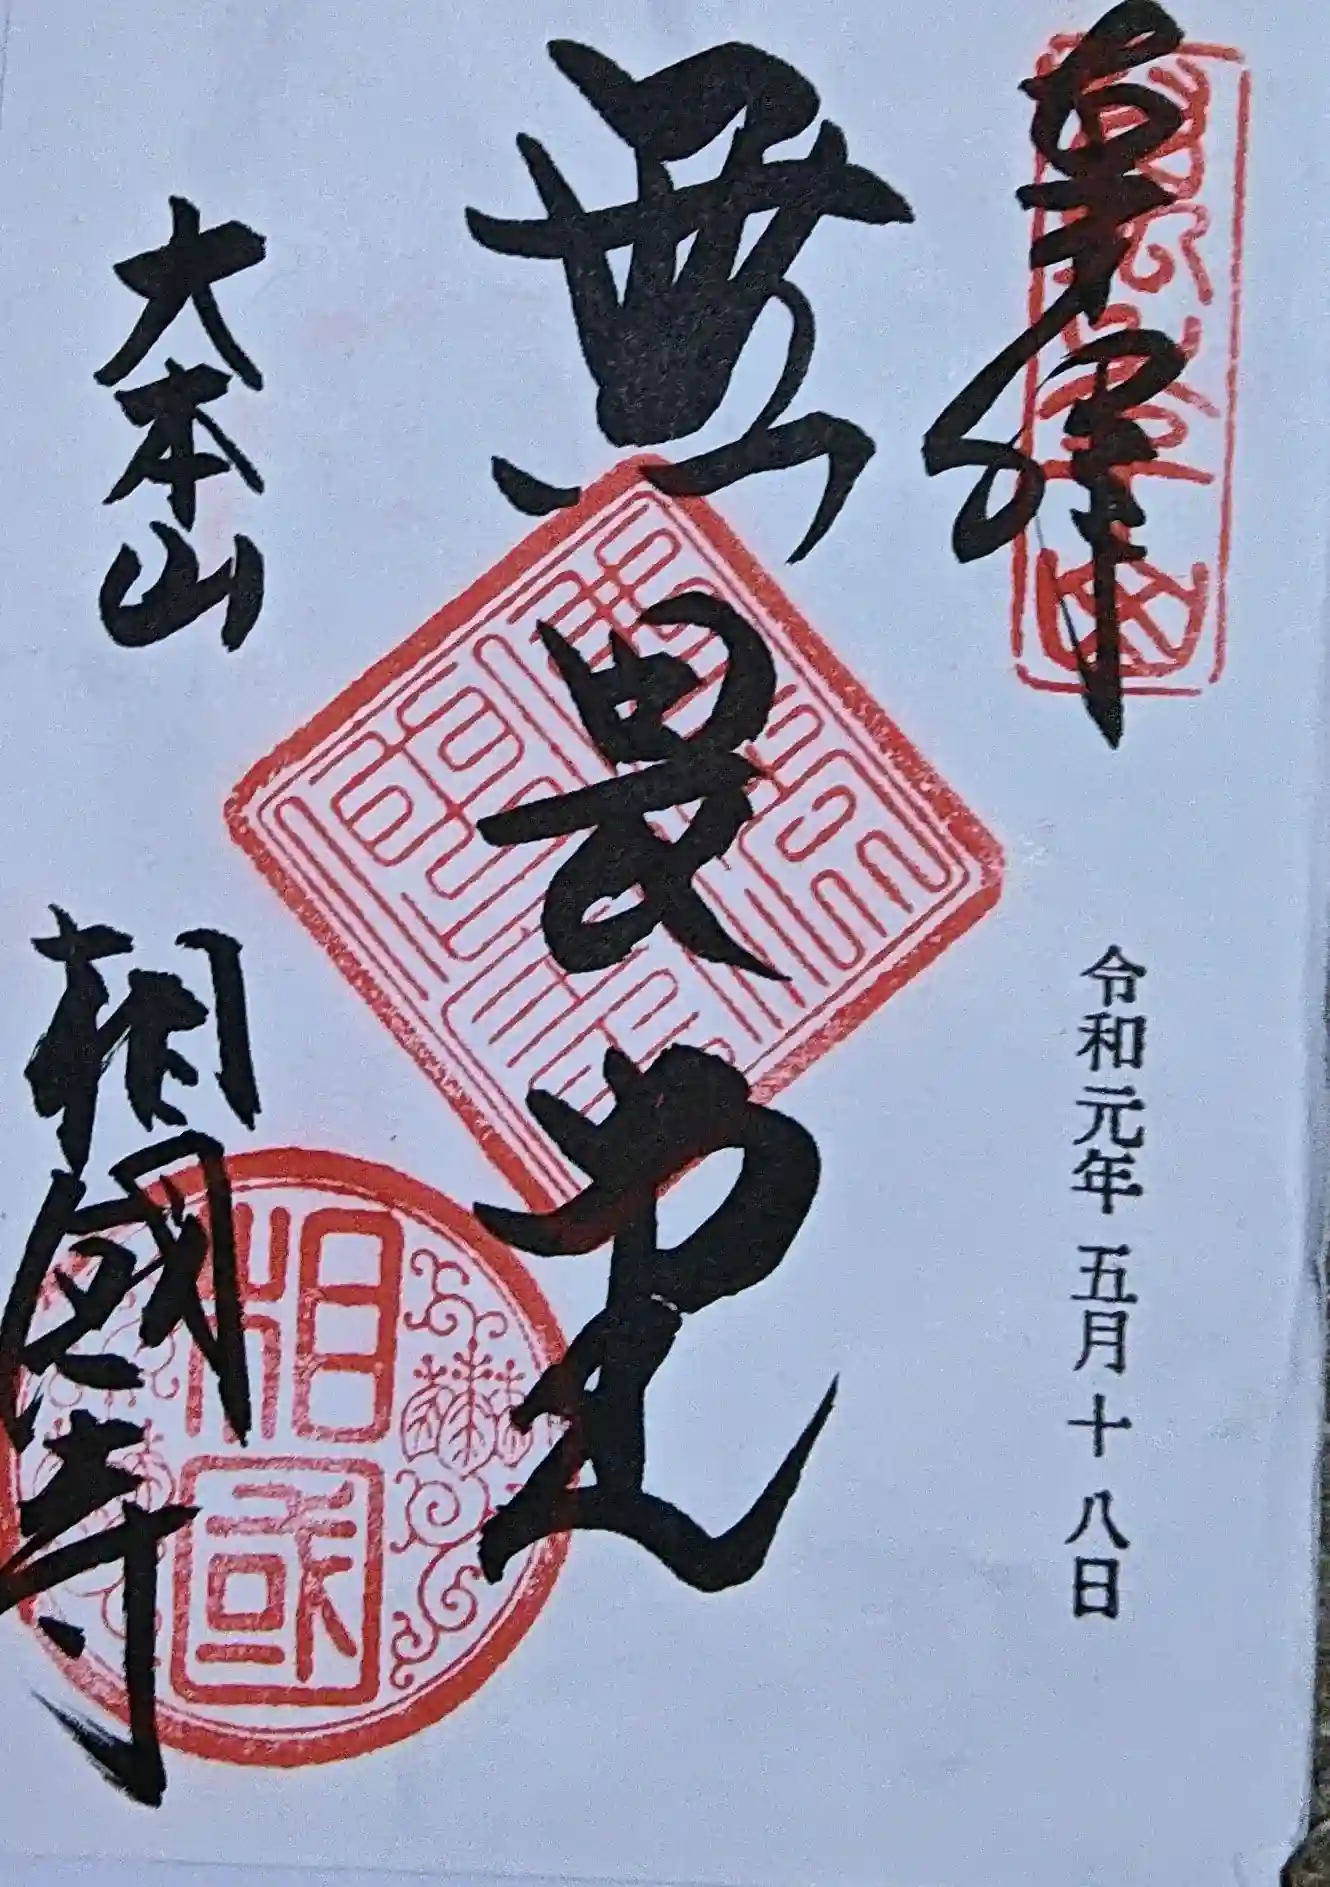 奉拝
令和元年 五月 十 八日
無畏堂
大本山
相國寺
相國